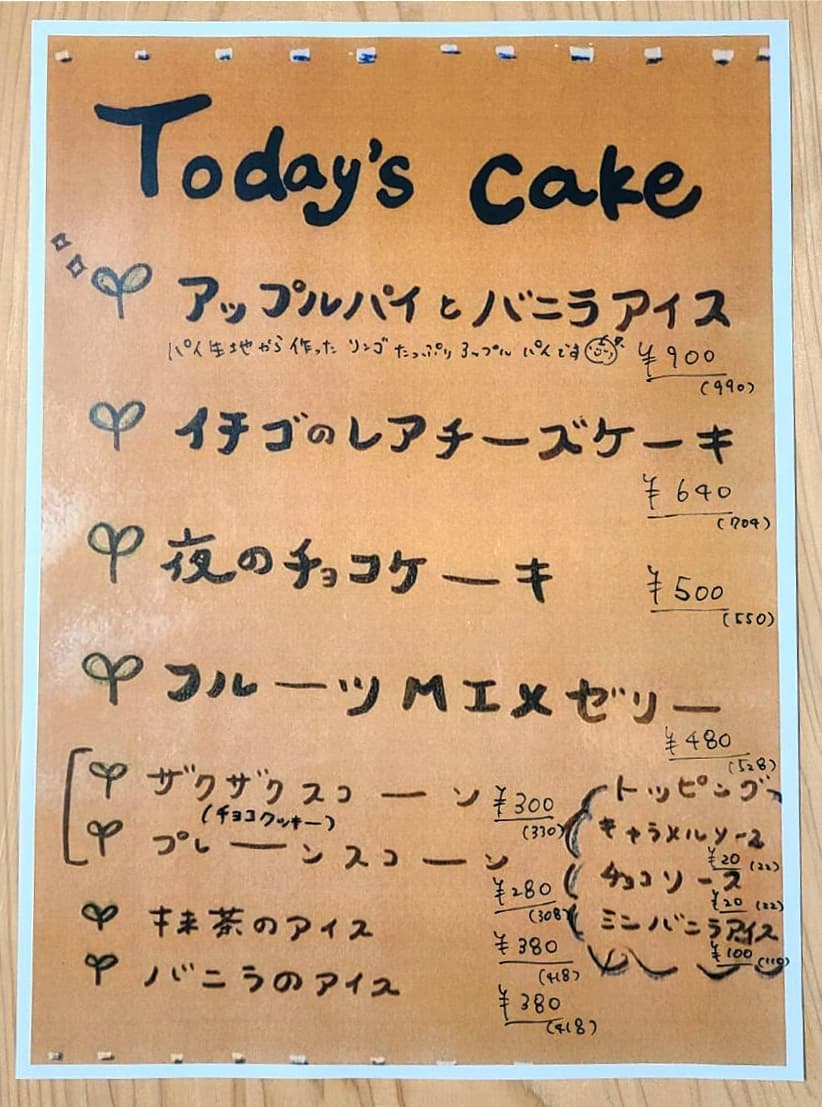 Today's cake
アップルパイとバニラアイス
パイ生地から作った リンゴ たっぷり アップル パイです
¥900
(990)
イチゴのレアチーズケーキ
¥640
(704)
夜のチョコケーキ
¥500
(550)
フルーツMIXゼリー
¥480
(528)
ザクザクスコーン
(チョコクッキー)
¥300
(330)
プレーンスコーン
¥280
(308)
抹茶のアイス
¥380
(418)
バニラのアイス
¥380
(418)
トッピング
キャラメルソース
¥20 (22)
チョコソース
¥20 (22)
ミニバニラアイス
¥100 (110)